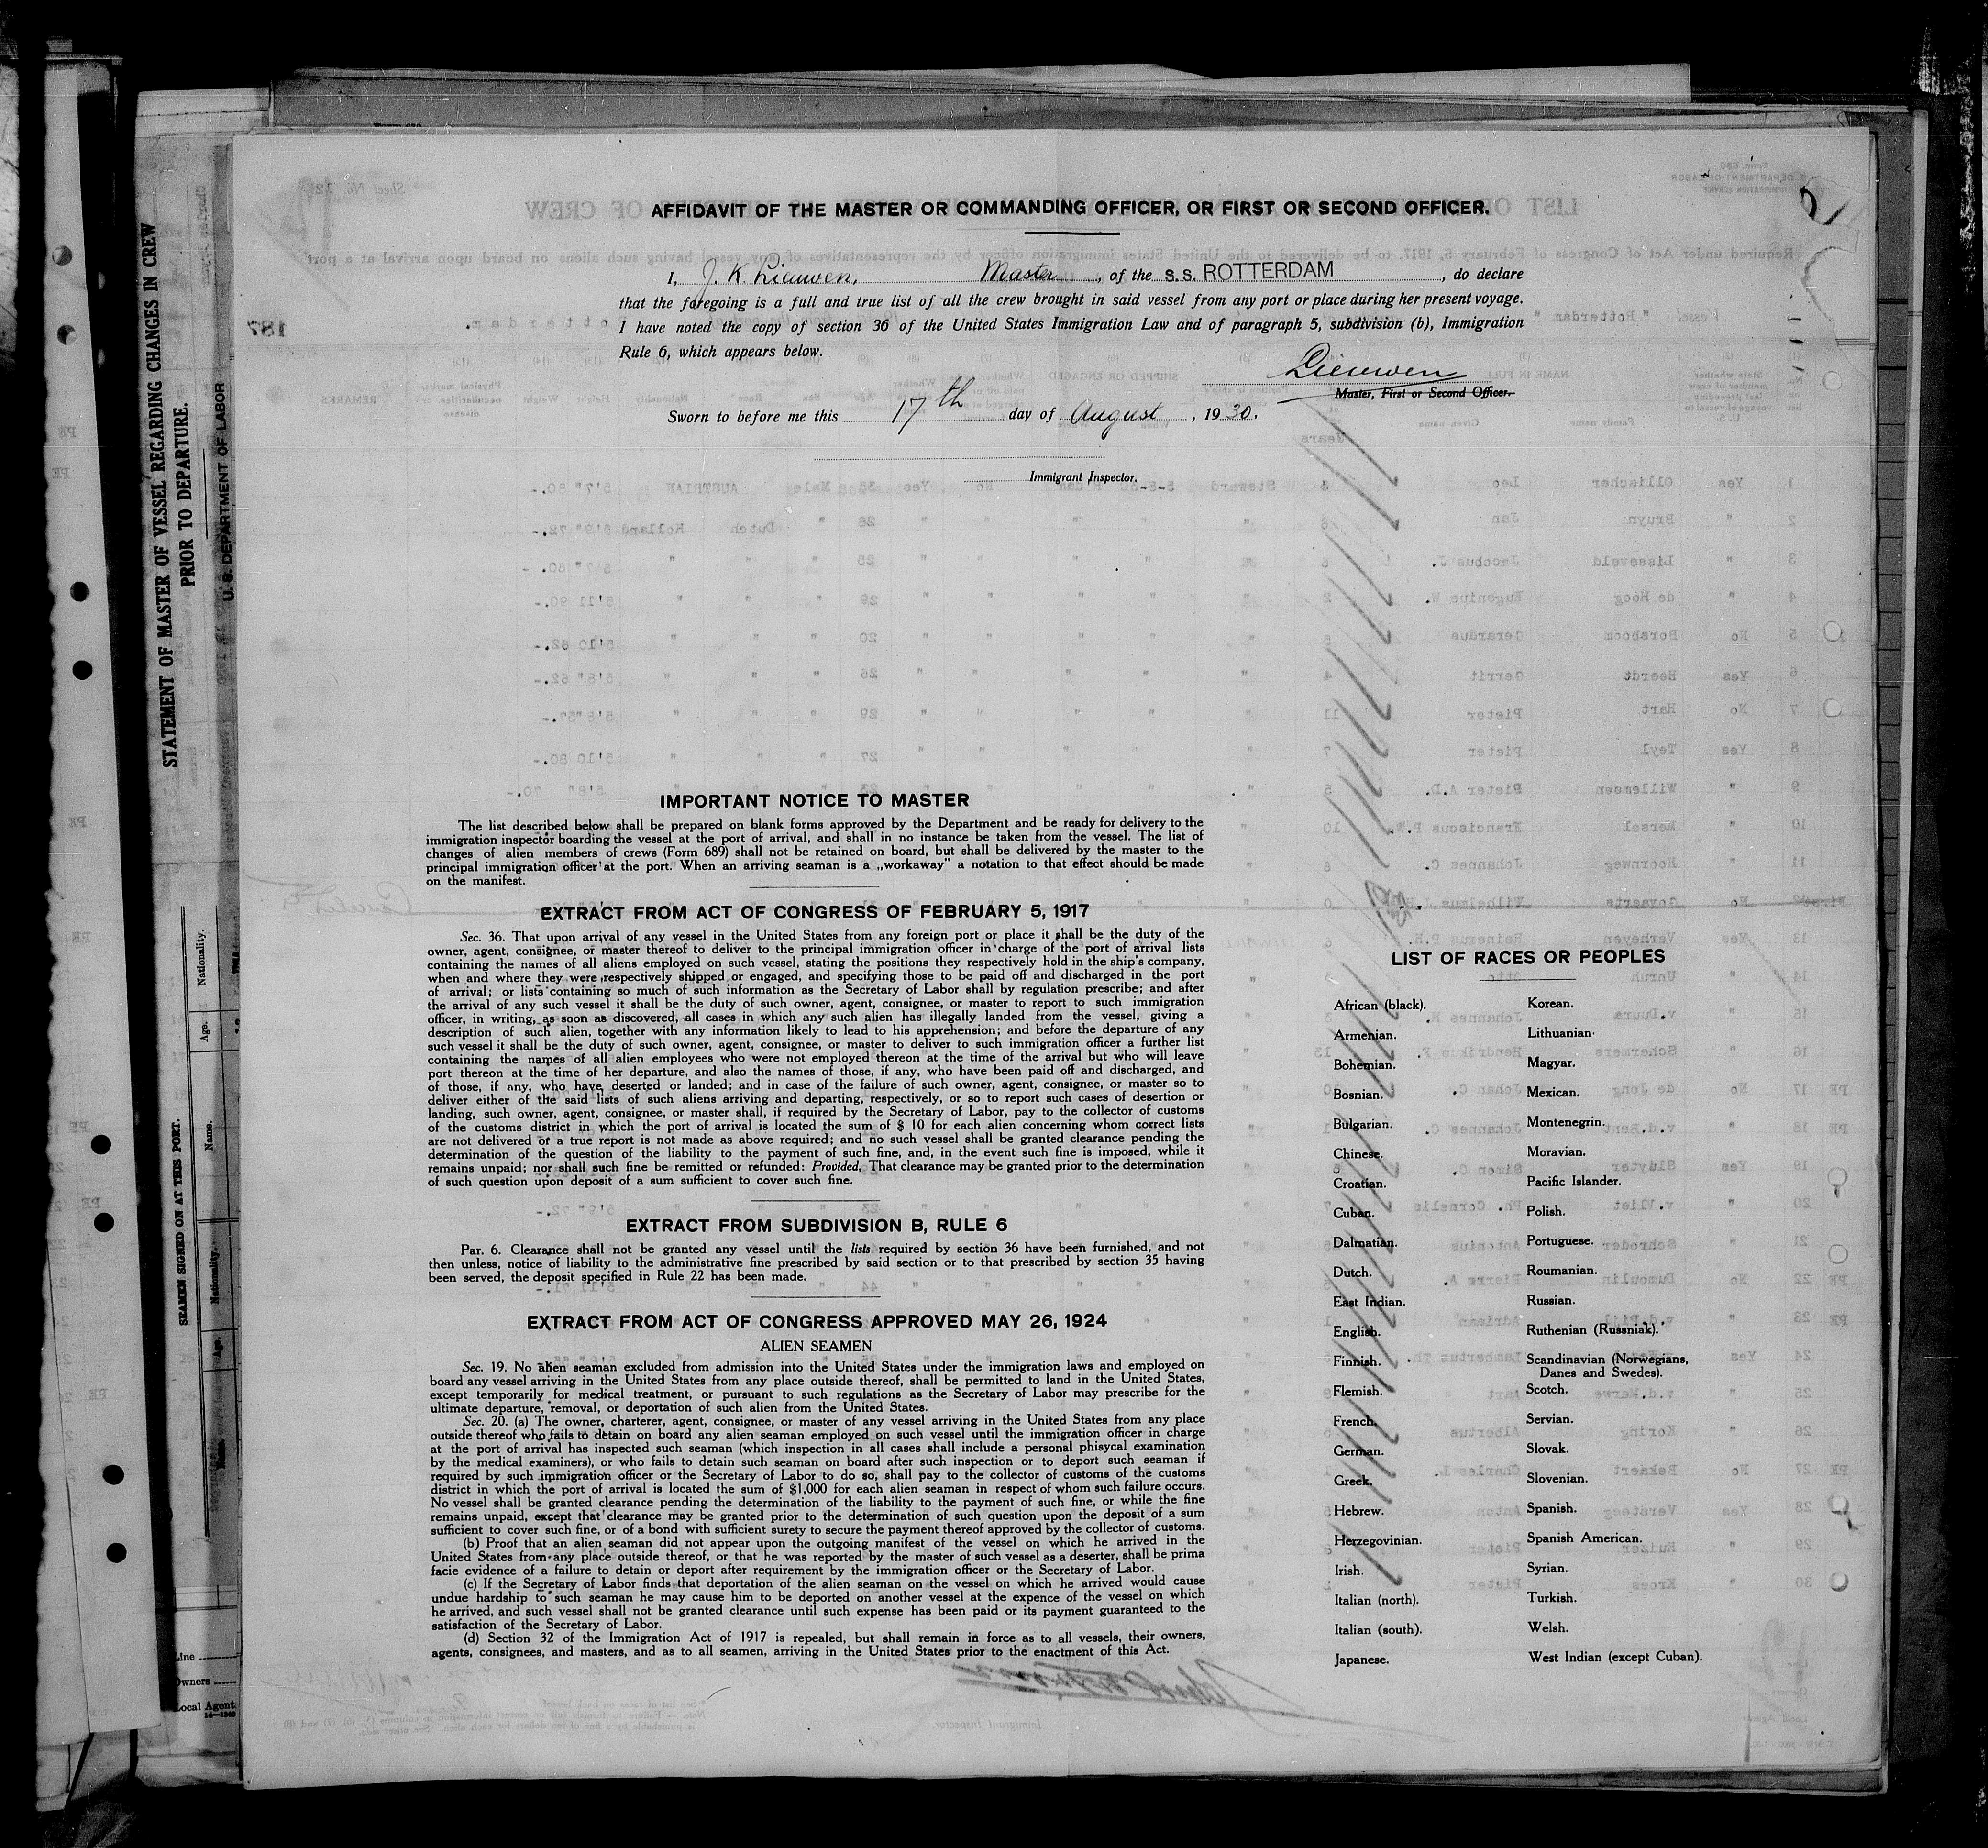 AFFIDAVIT OF THE MASTER OR COMMANDING OFFICER, OR FIRST OR SECOND OFFICER.
I, J. K. Lieuwen, Master, of the S.S. ROTTERDAM, do declare
that the foregoing is a full and true list of all the crew brought in said vessel from any port or place during her present voyage.
I have noted the copy of section 36 of the United States Immigration Law and of paragraph 5, subdivision (b), Immigration
Rule 6, which appears below.
Lieuwen
Master, First or Second Officer.
Sworn to before me this 17th day of August, 1930.
Immigrant Inspector.
IMPORTANT NOTICE TO MASTER
The list described below shall be prepared on blank forms approved by the Department and be ready for delivery to the
immigration inspector boarding the vessel at the port of arrival, and shall in no instance be taken from the vessel. The list of
changes of alien members of crews (Form 689) shall not be retained on board, but shall be delivered by the master to the
principal immigration officer at the port. When an arriving seaman is a „workaway” a notation to that effect should be made
on the manifest.
EXTRACT FROM ACT OF CONGRESS OF FEBRUARY 5, 1917
Sec. 36. That upon arrival of any vessel in the United States from any foreign port or place it shall be the duty of the
owner, agent, consignee, or master thereof to deliver to the principal immigration officer in charge of the port of arrival lists
containing the names of all aliens employed on such vessel, stating the positions they respectively hold in the ship's company,
when and where they were respectively shipped or engaged, and specifying those to be paid off and discharged in the port
of arrival; or lists containing so much of such information as the Secretary of Labor shall by regulation prescribe; and after
the arrival of any such vessel it shall be the duty of such owner, agent, consignee, or master to report to such immigration
officer, in writing, as soon as discovered, all cases in which any such alien has illegally landed from the vessel, giving a
description of such alien, together with any information likely to lead to his apprehension; and before the departure of any
such vessel it shall be the duty of such owner, agent, consignee, or master to deliver to such immigration officer a further list
containing the names of all alien employees who were not employed thereon at the time of the arrival but who will leave
port thereon at the time of her departure, and also the names of those, if any, who have been paid off and discharged, and
of those, if any, who have deserted or landed; and in case of the failure of such owner, agent, consignee, or master so to
deliver either of the said lists of such aliens arriving and departing, respectively, or so to report such cases of desertion or
landing, such owner, agent, consignee, or master shall, if required by the Secretary of Labor, pay to the collector of customs
of the customs district in which the port of arrival is located the sum of $ 10 for each alien concerning whom correct lists
are not delivered or a true report is not made as above required; and no such vessel shall be granted clearance pending the
determination of the question of the liability to the payment of such fine, and, in the event such fine is imposed, while it
remains unpaid; nor shall such fine be remitted or refunded: Provided, That clearance may be granted prior to the determination
of such question upon deposit of a sum sufficient to cover such fine.
EXTRACT FROM SUBDIVISION B, RULE 6
Par. 6. Clearance shall not be granted any vessel until the lists required by section 36 have been furnished, and not
then unless, notice of liability to the administrative fine prescribed by said section or to that prescribed by section 35 having
been served, the deposit specified in Rule 22 has been made.
EXTRACT FROM ACT OF CONGRESS APPROVED MAY 26, 1924
ALIEN SEAMEN
Sec. 19. No alien seaman excluded from admission into the United States under the immigration laws and employed on
board any vessel arriving in the United States from any place outside thereof, shall be permitted to land in the United States,
except temporarily for medical treatment, or pursuant to such regulations as the Secretary of Labor may prescribe for the
ultimate departure, removal, or deportation of such alien from the United States.
Sec. 20. (a) The owner, charterer, agent, consignee, or master of any vessel arriving in the United States from any place
outside thereof who fails to detain on board any alien seaman employed on such vessel until the immigration officer in charge
at the port of arrival has inspected such seaman (which inspection in all cases shall include a personal phisycal examination
by the medical examiners), or who fails to detain such seaman on board after such inspection or to deport such seaman if
required by such immigration officer or the Secretary of Labor to do so, shall pay to the collector of customs of the customs
district in which the port of arrival is located the sum of $1,000 for each alien seaman in respect of whom such failure occurs.
No vessel shall be granted clearance pending the determination of the liability to the payment of such fine, or while the fine
remains unpaid, except that clearance may be granted prior to the determination of such question upon the deposit of a sum
sufficient to cover such fine, or of a bond with sufficient surety to secure the payment thereof approved by the collector of customs.
(b) Proof that an alien seaman did not appear upon the outgoing manifest of the vessel on which he arrived in the
United States from any place outside thereof, or that he was reported by the master of such vessel as a deserter, shall be prima
facie evidence of a failure to detain or deport after requirement by the immigration officer or the Secretary of Labor.
(c) If the Secretary of Labor finds that deportation of the alien seaman on the vessel on which he arrived would cause
undue hardship to such seaman he may cause him to be deported on another vessel at the expence of the vessel on which
he arrived, and such vessel shall not be granted clearance until such expense has been paid or its payment guaranteed to the
satisfaction of the Secretary of Labor.
(d) Section 32 of the Immigration Act of 1917 is repealed, but shall remain in force as to all vessels, their owners,
agents, consignees, and masters, and as to all seamen, arriving in the United States prior to the enactment of this Act.
LIST OF RACES OR PEOPLES
African (black).
Armenian.
Bohemian.
Bosnian.
Bulgarian.
Chinese.
Croatian.
Cuban.
Dalmatian.
Dutch.
East Indian.
English.
Finnish.
Flemish.
French.
German.
Greek.
Hebrew.
Herzegovinian.
Irish.
Italian (north).
Italian (south).
Japanese.
Korean.
Lithuanian.
Magyar.
Mexican.
Montenegrin.
Moravian.
Pacific Islander.
Polish.
Portuguese.
Roumanian.
Russian.
Ruthenian (Russniak).
Scandinavian (Norwegians,
Danes and Swedes).
Scotch.
Servian.
Slovak.
Slovenian.
Spanish.
Spanish American.
Syrian.
Turkish.
Welsh.
West Indian (except Cuban).
STATEMENT OF MASTER OF VESSEL REGARDING CHANGES IN CREW
PRIOR TO DEPARTURE.
U. S. DEPARTMENT OF LABOR
SEAMEN SIGNED ON AT THIS PORT.
Nationality.
Age.
Name.
Nationality.
Age.
Line
Owners
Local Agent